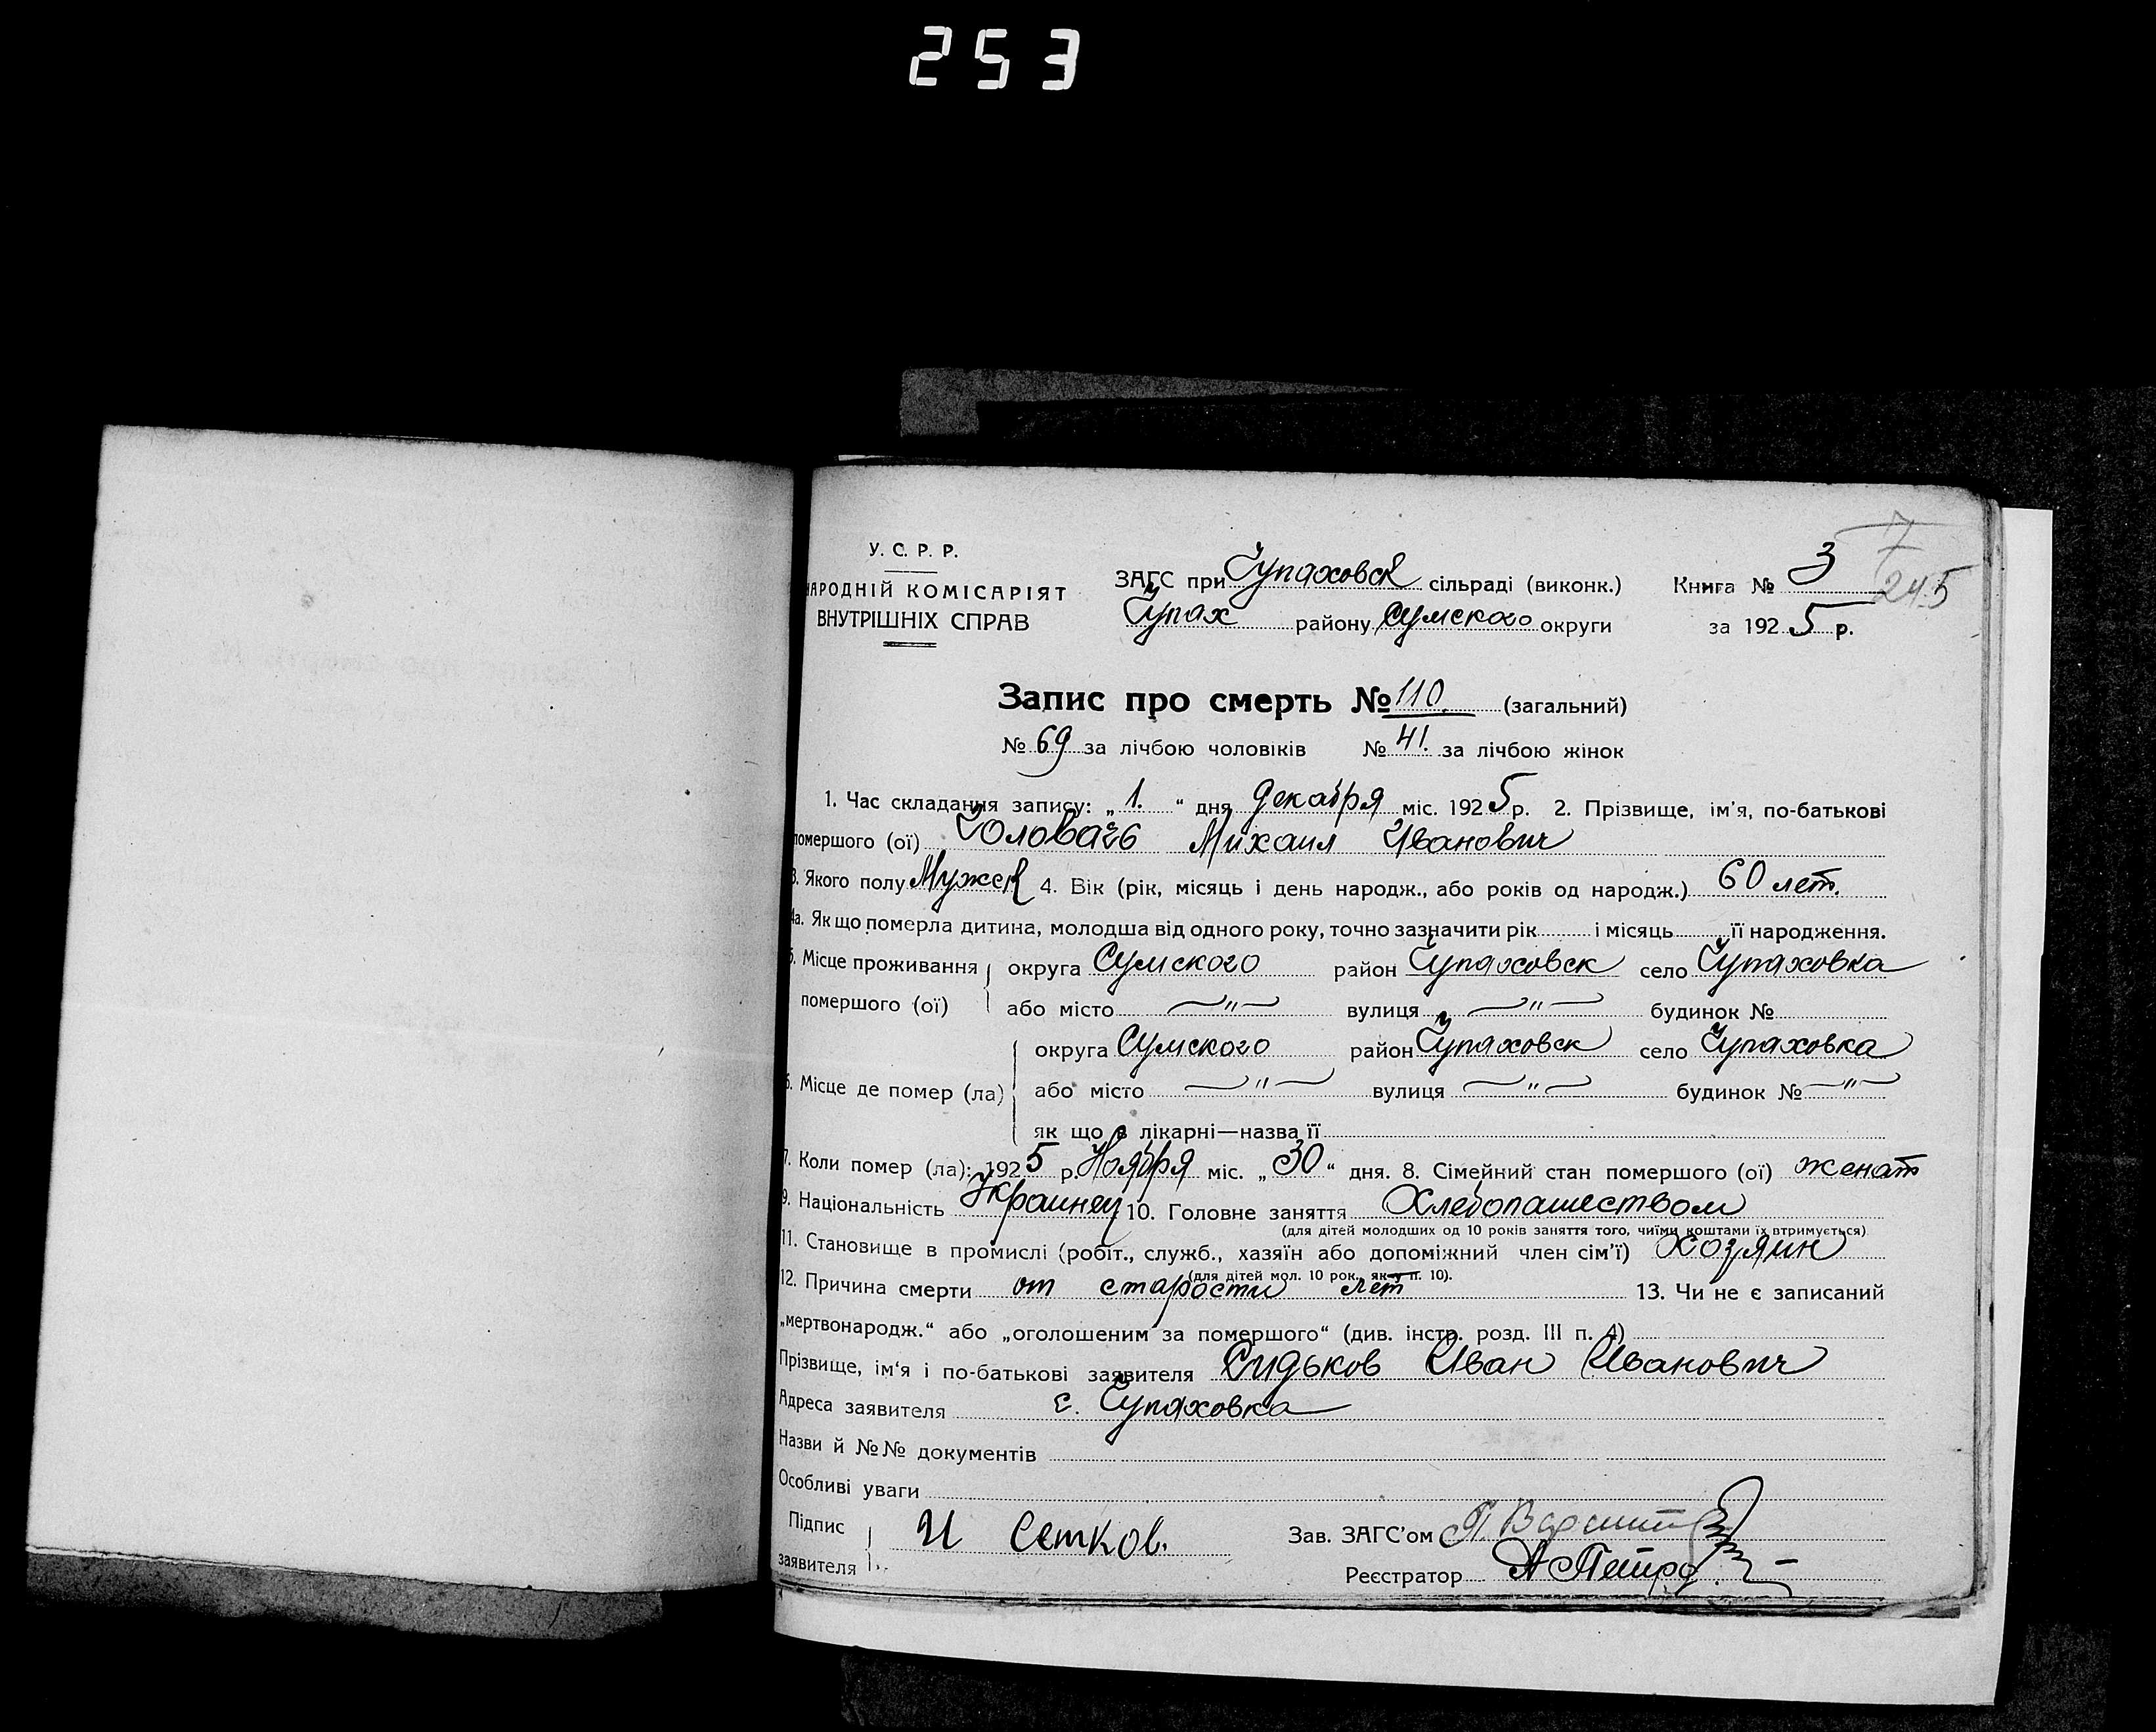 253
У. С. Р. Р.
НАРОДНІЙ КОМІСАРІЯТ
ВНУТРІШНІХ СПРАВ
ЗАГС при Чупаховск сільраді (виконк.)
Чупах району Сумского округи
Книга № 3
за 1925 р.
7
245
Запис про смерть № 110. (загальний)
№ 69 за лічбою чоловіків № 41. за лічбою жінок
1. Час складання запису: „1.“ дня Декабря міс. 1925 р. 2. Прізвище, ім'я, по-батькові
помершого (ої) Головачь Михаил Иванович
3. Якого полу Мужск 4. Вік (рік, місяць і день народж., або років од народж.) 60 лет.
4а. Як що померла дитина, молодша від одного року, точно зазначити рік і місяць її народження.
5. Місце проживання округа Сумского район Чупаховск село Чупаховка
помершого (ої) або місто —"— вулиця —"— будинок №
округа Сумского район Чупаховск село Чупаховка
6. Місце де помер (ла) або місто —"— вулиця —"— будинок № —"—
як що в лікарні—назва її
7. Коли помер (ла): 1925 р. Ноября міс. „30“ дня. 8. Сімейний стан помершого (ої) женат
9. Національність Украинец 10. Головне заняття Хлебопашеством
(для дітей молодших од 10 років заняття того, чиїми коштами їх втримується)
11. Становище в промислі (робіт., служб., хазяїн або допоміжний член сім'ї) Хозяин
(для дітей мол. 10 рок., як у п. 10).
12. Причина смерти от старости лет 13. Чи не є записаний
„мертвонародж.“ або „оголошеним за помершого“ (див. інстр. розд. III п. 4)
Прізвище, ім'я і по-батькові заявителя Сидьков Иван Иванович
Адреса заявителя с. Чупаховка
Назви й №№ документів
Особливі уваги
Підпис
заявителя И Сетков.
Зав. ЗАГС'ом
Реєстратор А Петро